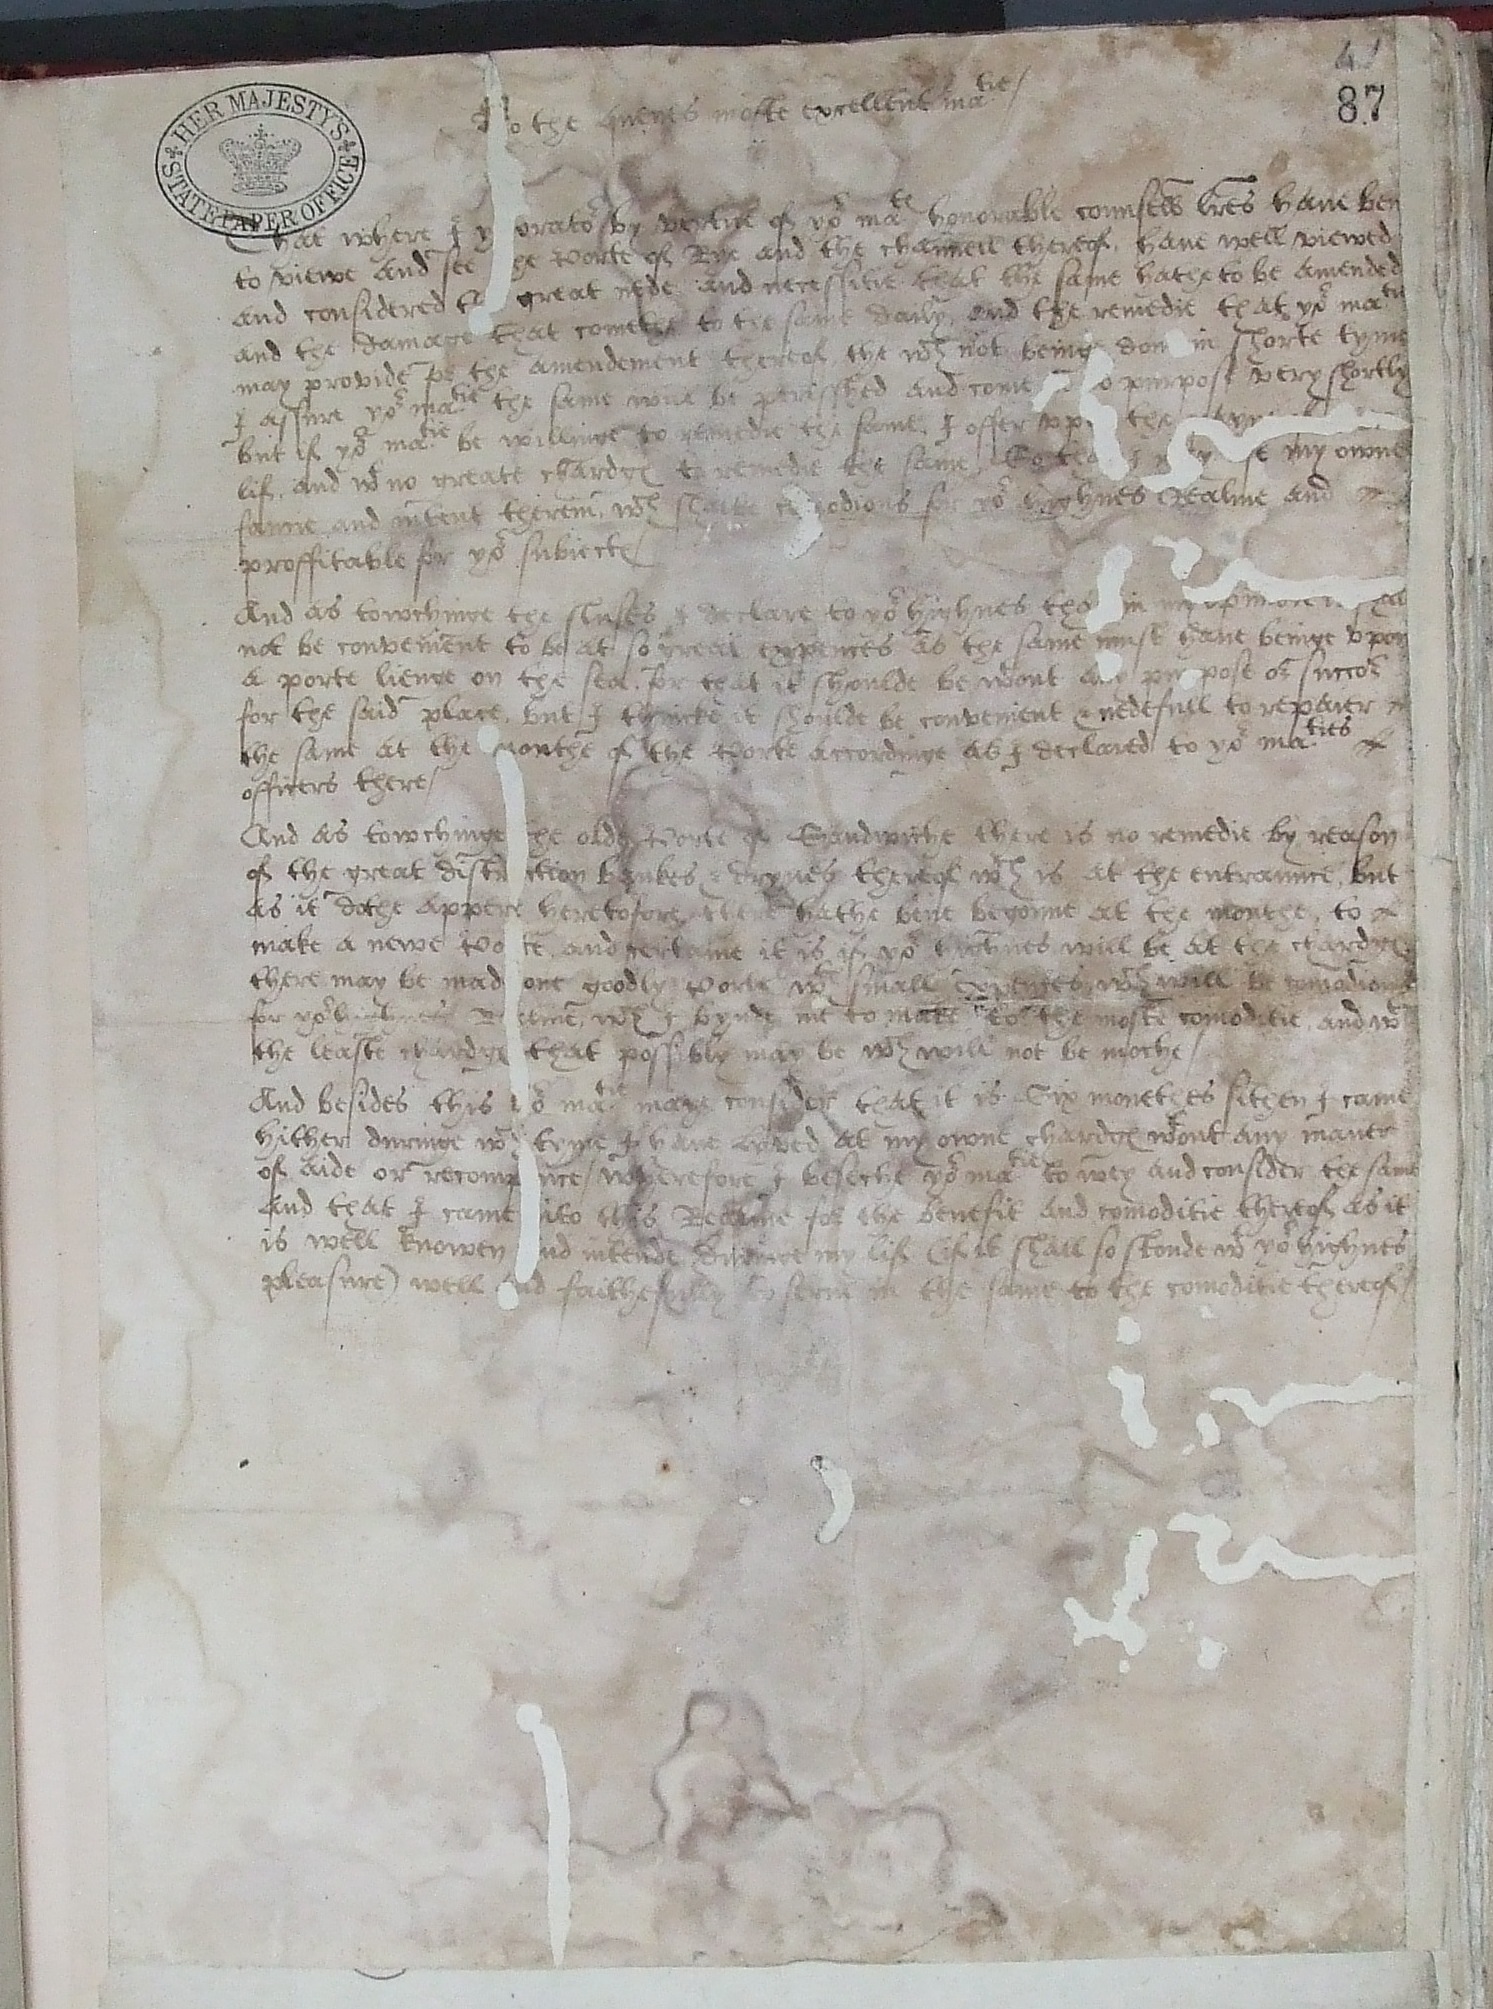 41
87
HER MAJESTY'S
STATE PAPER OFFICE
To the quenes moste excellent ma^tie/
That where I yo^r orato^r by vertue of yo^r ma^ts honorable counsells lres have ben
to viewe and see the Porte of Rye and the channell therof, have well viewed
and considered the great nede and necessitie that the same hathe to be amended
and the damage that comethe to the same daily, and the remedie that yo^r ma^tie
may provide for the amendement therof, the w^ch not beinge don in shorte tyme
I assure yo^r ma^tie the same will be perisshed and come to no purpose very shortly
but if yo^r ma^tie be willinge to remedie the same, I offer vpon the my owne
lif, and w^t no greate chardges to remedie the same, So that I may use my owne
and intent therein, w^ch shalbe comodious for yo^r highnes Realme and
proffitable for yo^r subiects/
And as towchinge the sluses I declare to yo^r highnes that in my opinion it shal
not be convenient to be at so great expences as the same must have beinge vpon
a porte lienge on the sea, for that it shoulde be w^tout any purpose or succor
for the said place, but I thincke it shoulde be convenient & nedefull to repaier
the same at the mouthe of the Porte accordinge as I declared to yo^r ma^ties
officers there/
And as towchinge the olde Porte of Sandwiche there is no remedie by reason
of the great distruction bankes & drynes therof w^ch is at the entraunce, but
as it dothe appere heretofore there hathe bene begonne at the mouthe, to
make a newe Porte, and certaine it is if yo^r highnes will be at the chardges
there may be made one goodly Porte w^t small expences, w^ch will be comodious
for yo^r highnes Realme, w^ch I bynde me to make to the moste comoditie, and w^t
the leaste chardge that possibly may be w^ch will not be moche/
And besides this yo^r ma^tie maye consider that it is Six monethes sithen I came
hither duringe w^ch tyme I have lyved at my owne chardges w^tout any maner
of aide or recompence/ wherefore I beseche yo^r ma^tie to wey and consider the same
And that I came into this Realme for the benefit and comoditie therof as it
is well knowen and intende duringe my lif (if it shall so stonde w^t yo^r highnes
pleasure) well and faithefully to serve in the same to the comoditie therof/